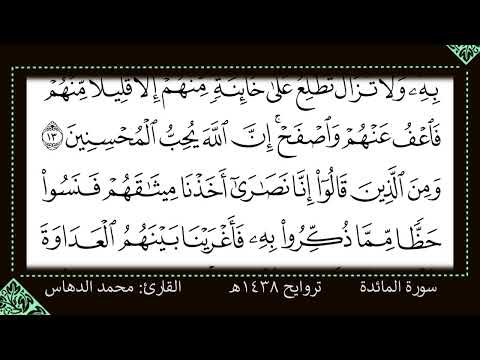 بِهِۦ وَلَا تَزَالُ تَطَّلِعُ عَلَىٰ خَآئِنَةٍ مِّنْهُمْ إِلَّا قَلِيلًا مِّنْهُمْ
فَٱعْفُ عَنْهُمْ وَٱصْفَحْ ۚ إِنَّ ٱللَّهَ يُحِبُّ ٱلْمُحْسِنِينَ ١٣
وَمِنَ ٱلَّذِينَ قَالُوٓا۟ إِنَّا نَصَٰرَىٰٓ أَخَذْنَا مِيثَٰقَهُمْ فَنَسُوا۟
حَظًّا مِّمَّا ذُكِّرُوا۟ بِهِۦ فَأَغْرَيْنَا بَيْنَهُمُ ٱلْعَدَاوَةَ
سورة المائدة تروايح ١٤٣٨هـ القارئ: محمد الدهاس